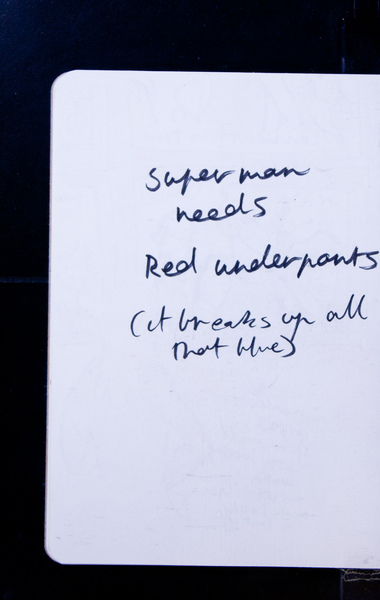 Superman
needs
Red underpants
(it breaks up all
that blue)